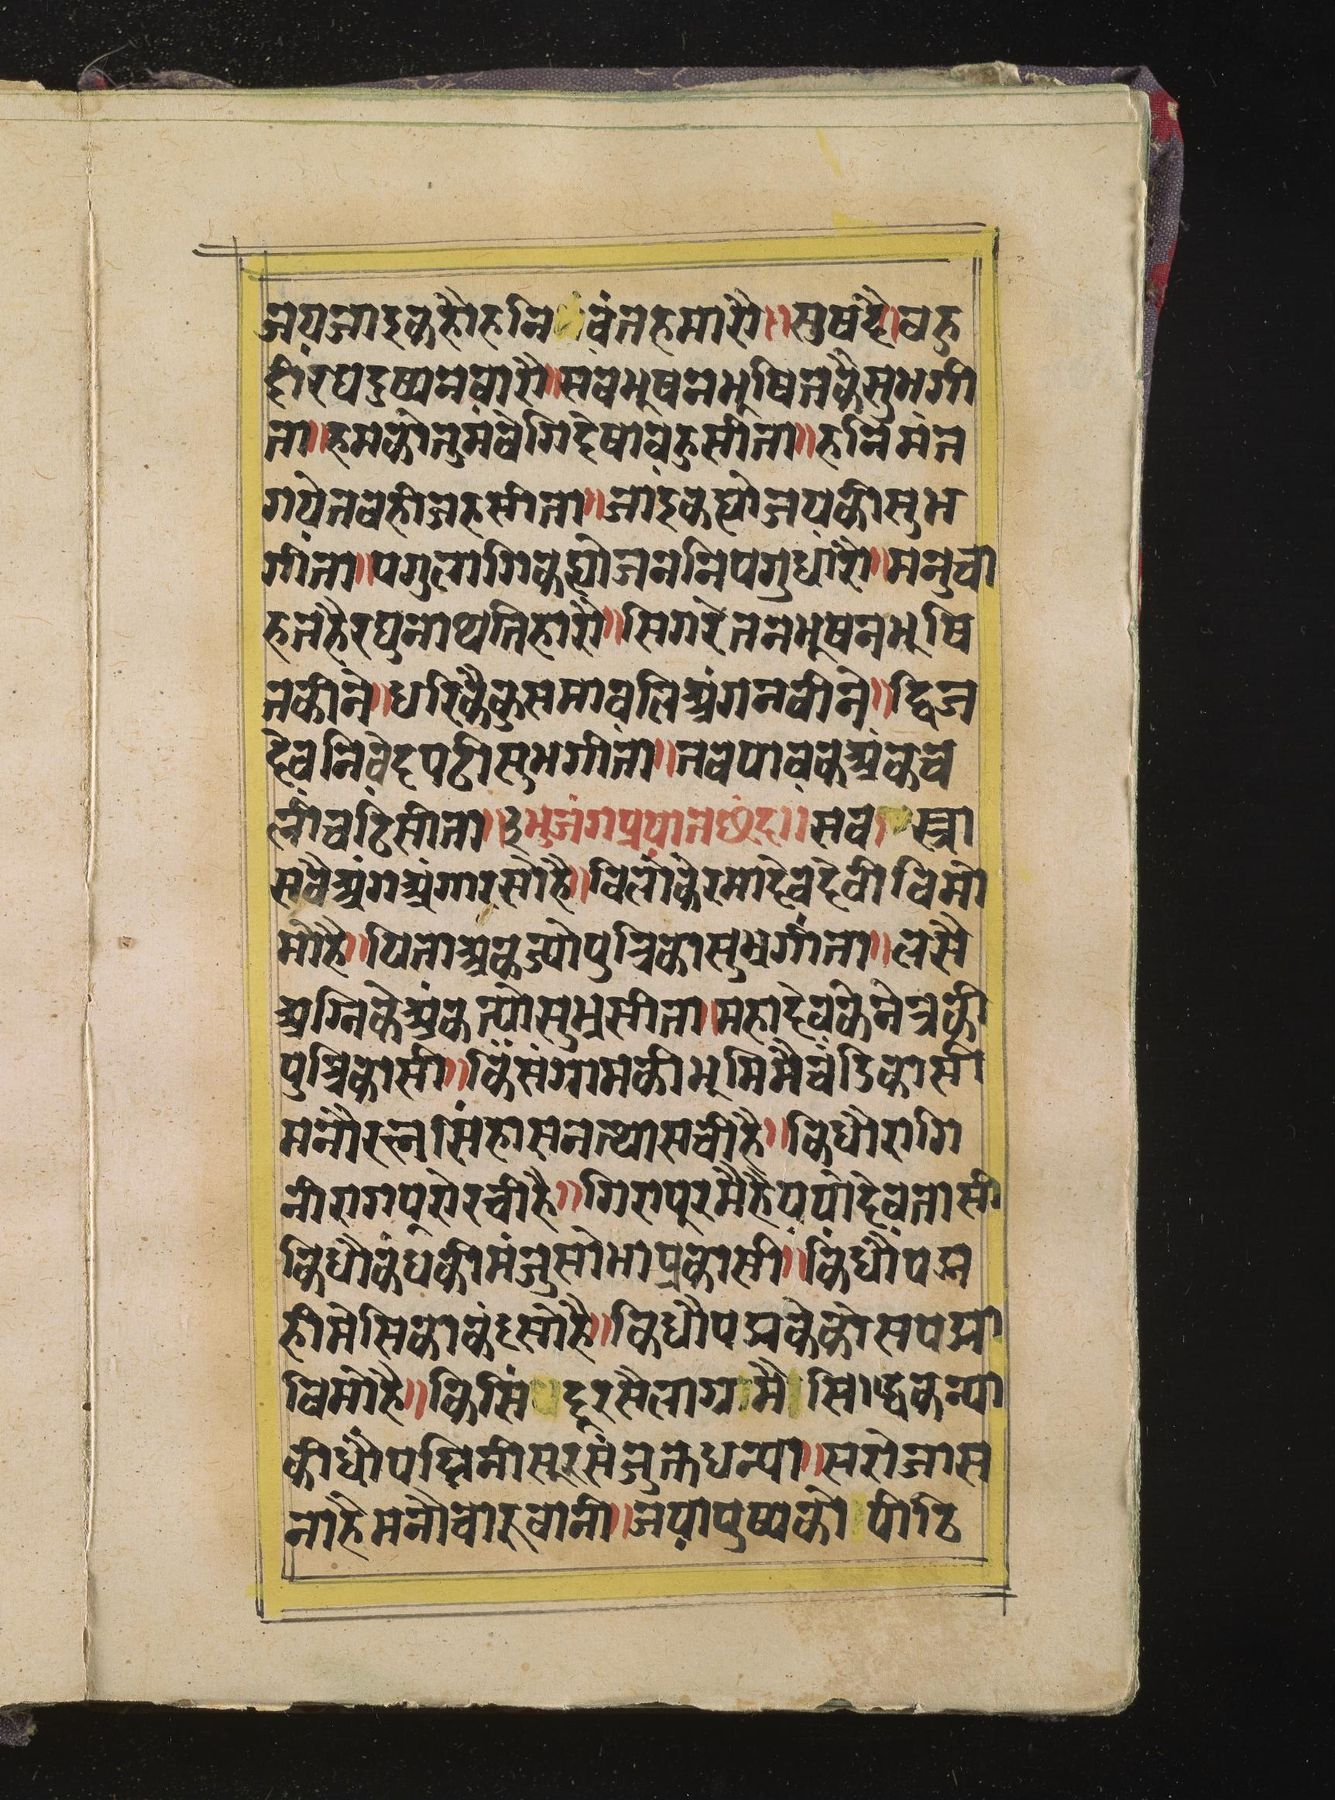 जयजाइकहौहनि वंतहमारौ॥सुषंदै।वहु
हींरघदुष्यनवारौ॥सवभूषनभूषितकैसुभगी
ता॥हमकौतुमवेगिदेषावहुसीता॥हनिमंत
गयेतवहीजहसीता॥जाइकह्योजयकीसुभ
गीता॥पगुलागिकह्योजननिपगुधारौ॥मनुचा
हतहैरघुनाथनिहारौ॥सिगरेतनभूषनभूषि
तकीने॥धरिकैकुसमावलिअंगनवीने॥द्विज
देवनिवेदपढीसुभगीता॥तवपावकअंकच
लीचढिसीता॥३भुजंगप्रयातछंद॥सव स्त्रा
सवैअंगश्रंगारसौहै॥विलोकेरमादेवदेवीविमो
मोहै॥पिताअंकज्योपुत्रिकासुभ्रगीता॥लसै
अग्निकेअंकत्योसुभ्रसीता॥महादेवकेनेत्रकी
पुत्रिकासी॥किसंग्रामकीभूमिमैचंडिकासी
मनौरत्नसिंहासनत्थासचीहै॥किधौरागि
नीरागपूरोरचीहै॥गिरापूरमैहैपयोदेवतासी
किधौकंधकीमंजुसोभाप्रकासी॥किधौंपद्म
हीमेसिफाकंदसोहै॥किधौपद्मकेकोसपद्मा
विमोहै॥किसिं दूरसैलाग्रमैसिाद्धकन्या
कीधौंपद्मिनीसूरसंजुक्तधन्या॥सरोजास
नाहैमनौचारुवानी॥जपापुष्पकौ पीठि